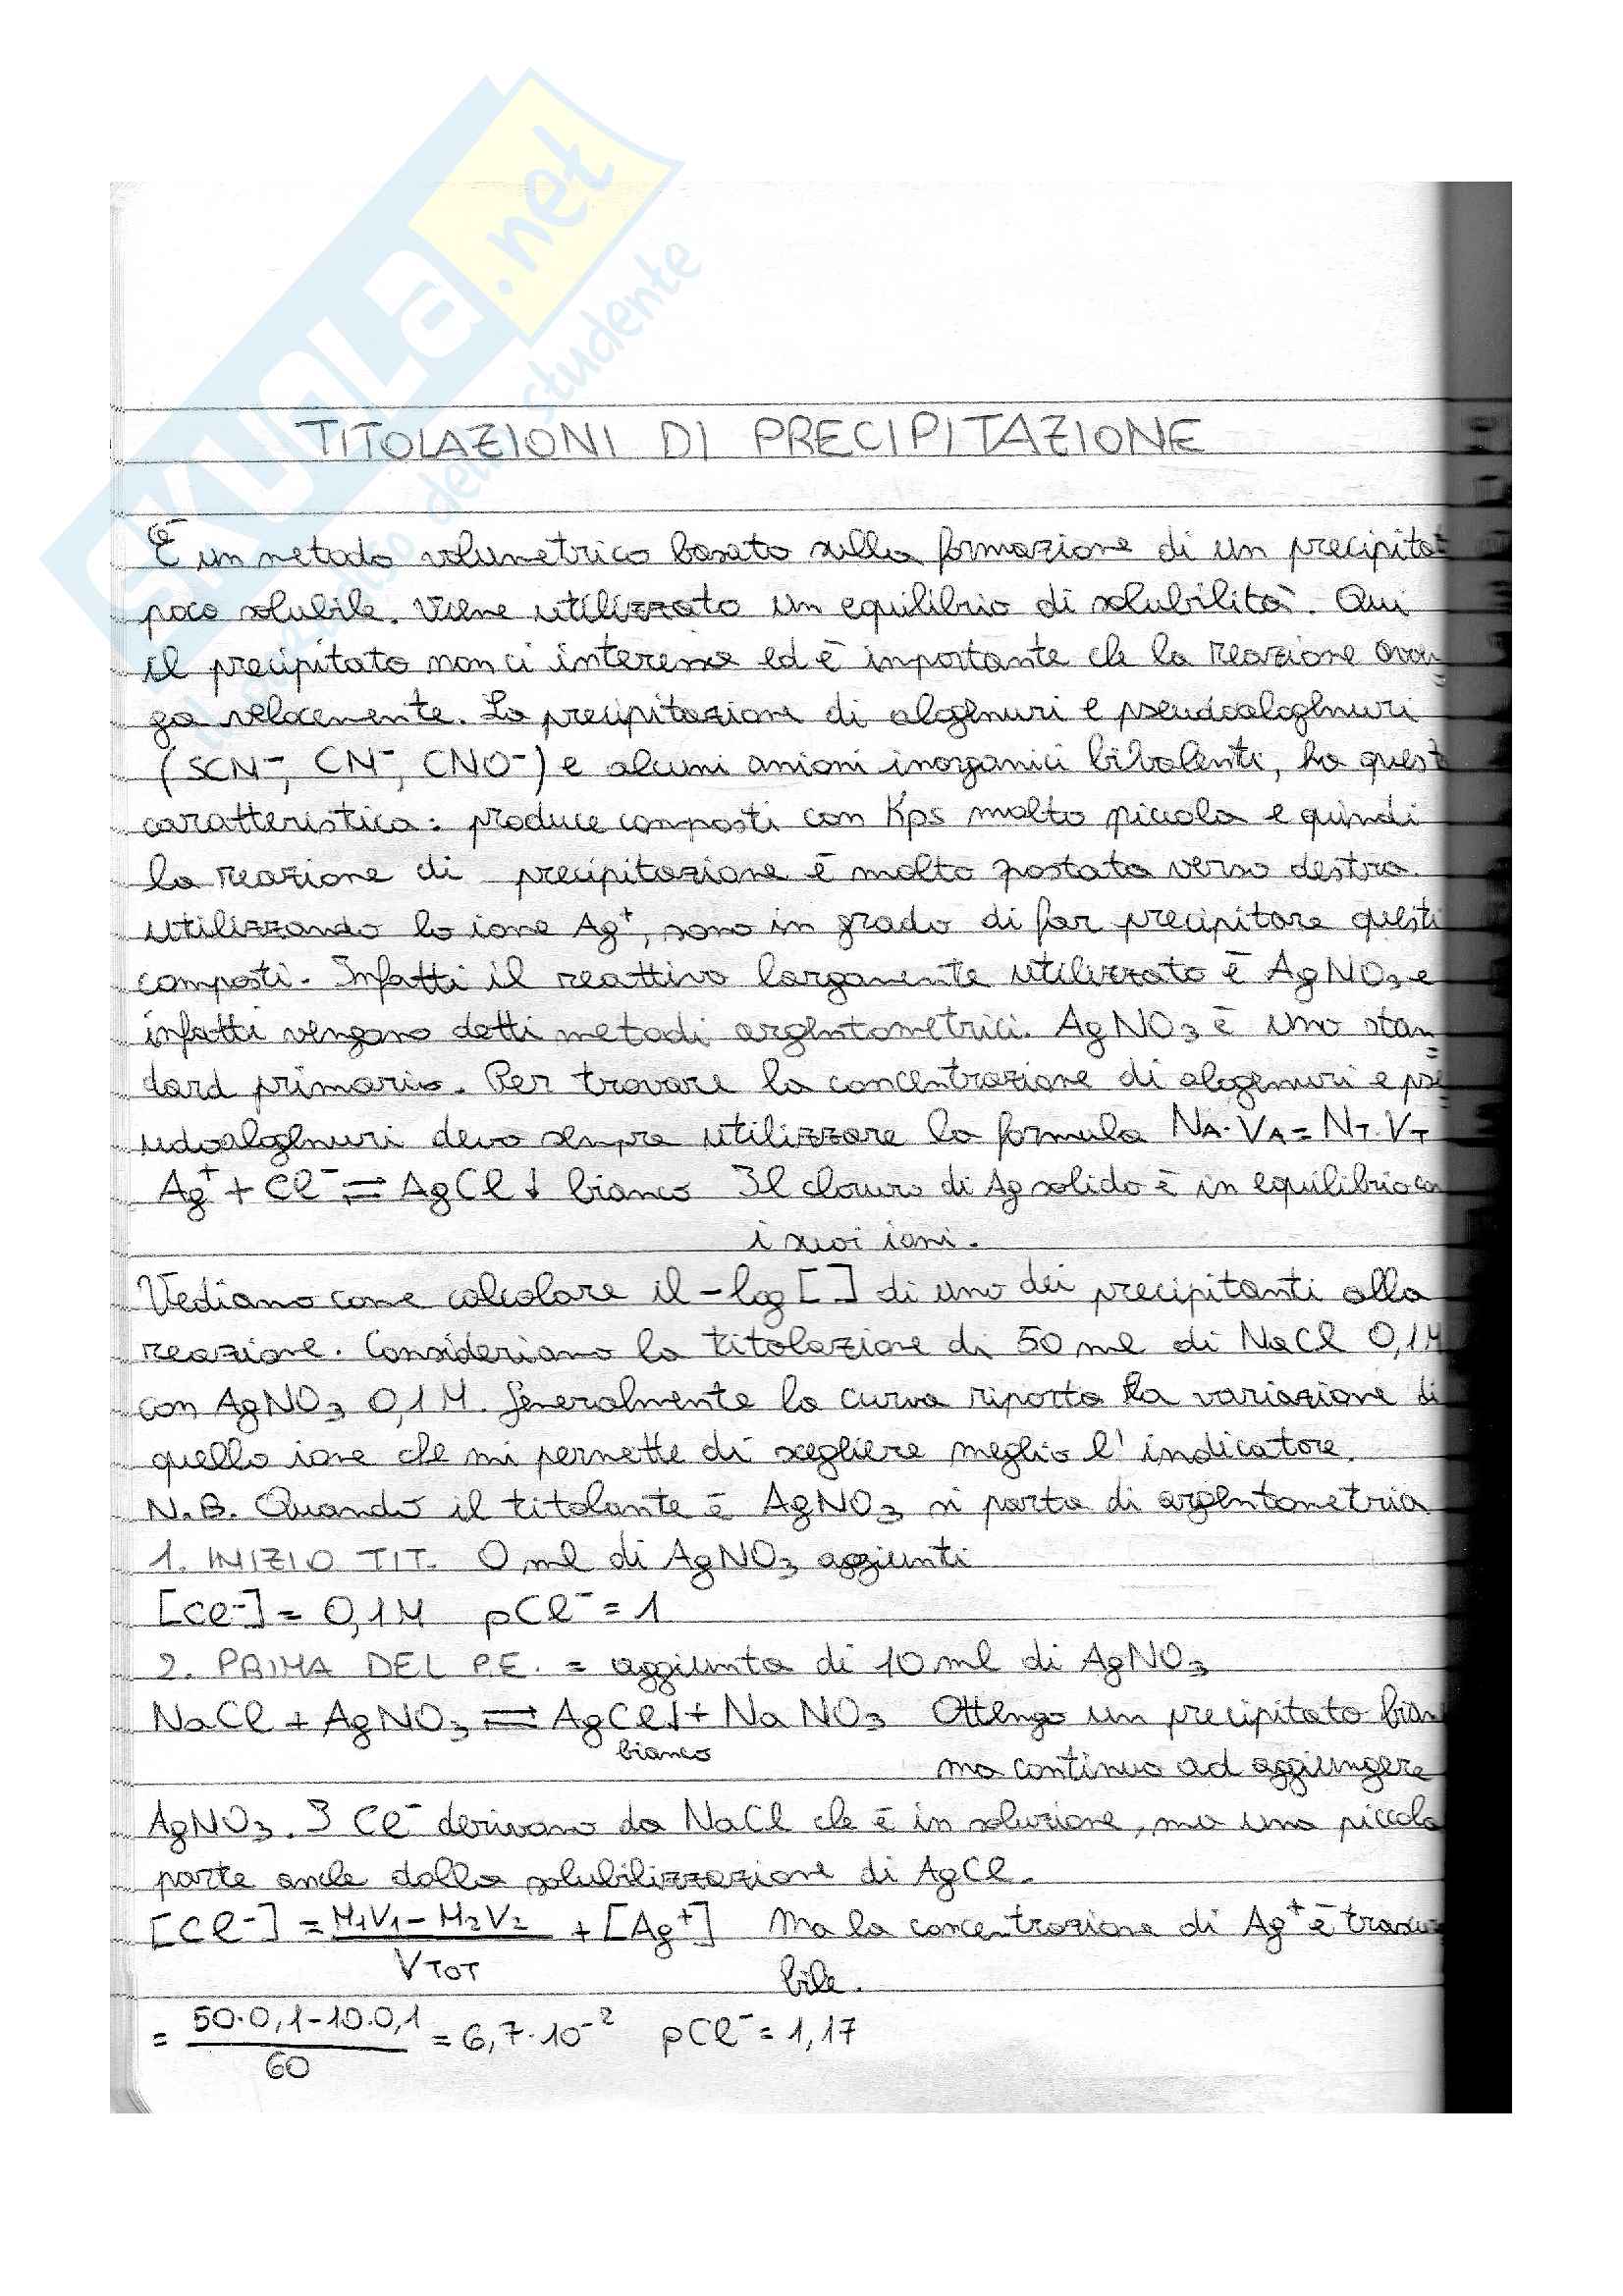 SKUOLA.net
il paradiso dello studente
TITOLAZIONI DI PRECIPITAZIONE
È un metodo volumetrico basato sulla formazione di un precipitat
poco solubile. Viene utilizzato un equilibrio di solubilità. Qui
il precipitato non ci interessa ed è importante che la reazione avven=
ga velocemente. La precipitazione di alogenuri e pseudoalogenuri
(SCN⁻, CN⁻, CNO⁻) e alcuni anioni inorganici bivalenti, ha quest
caratteristica: produce composti con Kps molto piccola e quindi
la reazione di precipitazione è molto spostata verso destra.
Utilizzando lo ione Ag⁺, sono in grado di far precipitare questi
composti. Infatti il reattivo largamente utilizzato è AgNO₃ e
infatti vengono detti metodi argentometrici. AgNO₃ è uno stan=
dard primario. Per trovare la concentrazione di alogenuri e pse
udoalogenuri devo sempre utilizzare la formula NA·VA=NT·VT
Ag⁺ + Cl⁻ ⇌ AgCl↓ bianco Il cloruro di Ag solido è in equilibrio con
i suoi ioni.
Vediamo come calcolare il -log[ ] di uno dei precipitanti alla
reazione. Consideriamo la titolazione di 50 ml di NaCl 0,1M
con AgNO₃ 0,1M. Generalmente la curva riporta la variazione di
quello ione che mi permette di scegliere meglio l'indicatore.
N.B. Quando il titolante è AgNO₃ si parla di argentometria
1. INIZIO TIT. 0 ml di AgNO₃ aggiunti
[Cl⁻] = 0,1M pCl⁻ = 1
2. PRIMA DEL P.E. = aggiunta di 10 ml di AgNO₃
NaCl + AgNO₃ ⇌ AgCl↓ + NaNO₃ Ottengo un precipitato bian
bianco
ma continuo ad aggiungere
AgNO₃. I Cl⁻ derivano da NaCl che è in soluzione, ma una piccola
parte anche dalla solubilizzazione di AgCl.
[Cl⁻] = M₁V₁ - M₂V₂ / VTOT + [Ag⁺] Ma la concentrazione di Ag⁺ è trascura
bile.
= 50·0,1-10·0,1 / 60 = 6,7·10⁻² pCl⁻ = 1,17